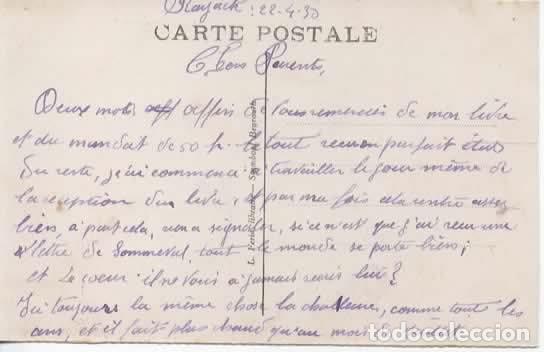 22-4-30
CARTE POSTALE
Chers Parents,
Deux mots affin de vous remercier de mon livre
et du mandat de 50 f. le tout reçu en parfait état
Du reste, j'ai commencé à travailler le jour même de
la reception du livre, et par ma fois cela rentre assez
bien, à part cela, rien a signaler, si ce n'est que j'ai reçu une
lettre de Sommeval, tout le monde se porte bien;
et Le coeur il ne vous a jamais écris lui?
Ici toujours la même chose la chaleur, comme tout les
ans, et il fait plus chaud qu'au mois de
L. Férid, libraire
todocoleccion.net